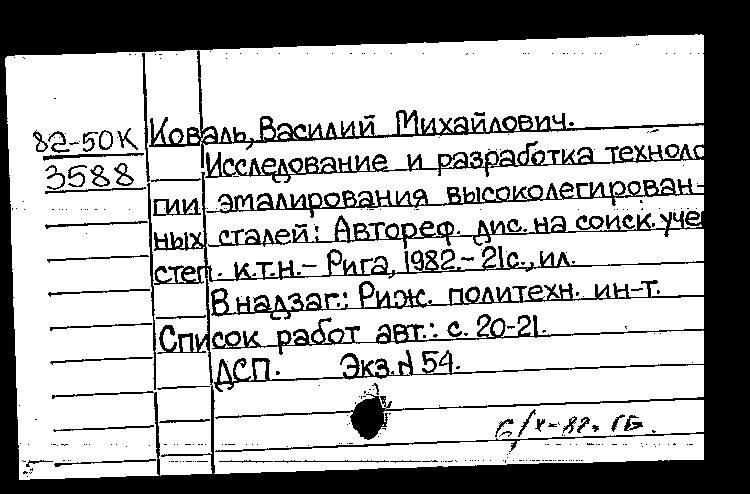 82-50К
3588
Коваль, Василий Михайлович.
Исследование и разработка техноло
гии эмалирования высоколегирован-
ных сталей: Автореф. дис. на соиск. учен
степ. к.т.н.- Рига, 1982.- 21с., ил.
В надзаг.: Риж. политехн. ин-т.
Список работ авт.: с. 20-21.
ДСП. Экз.N 54.